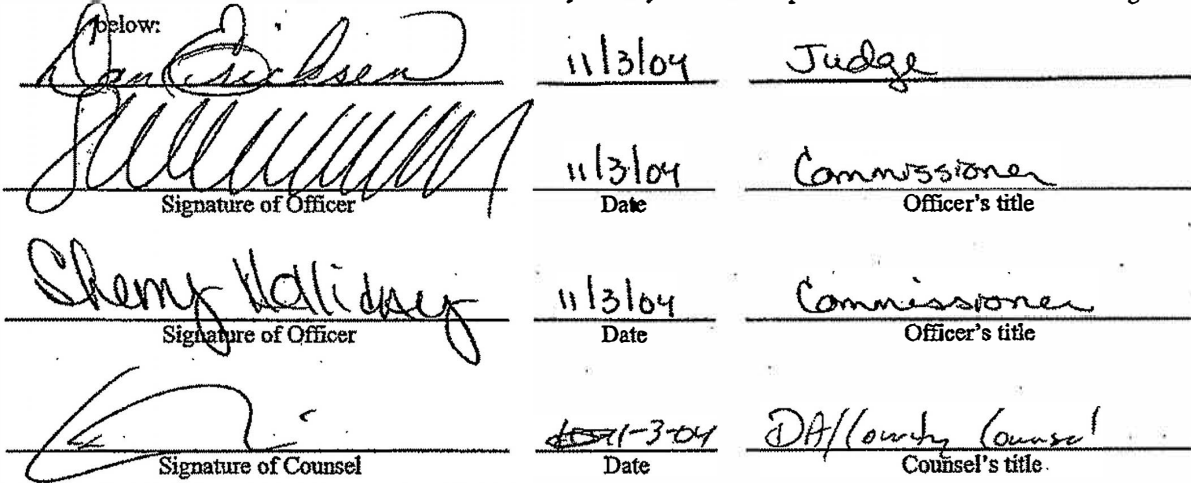 below:
Dan Ericksen 11/3/04 Judge
11/3/04 Commissioner
Signature of Officer Date Officer's title
Sherry Holliday 11/3/04 Commissioner
Signature of Officer Date Officer's title
11-3-04 DA/County Counsel
Signature of Counsel Date Counsel's title